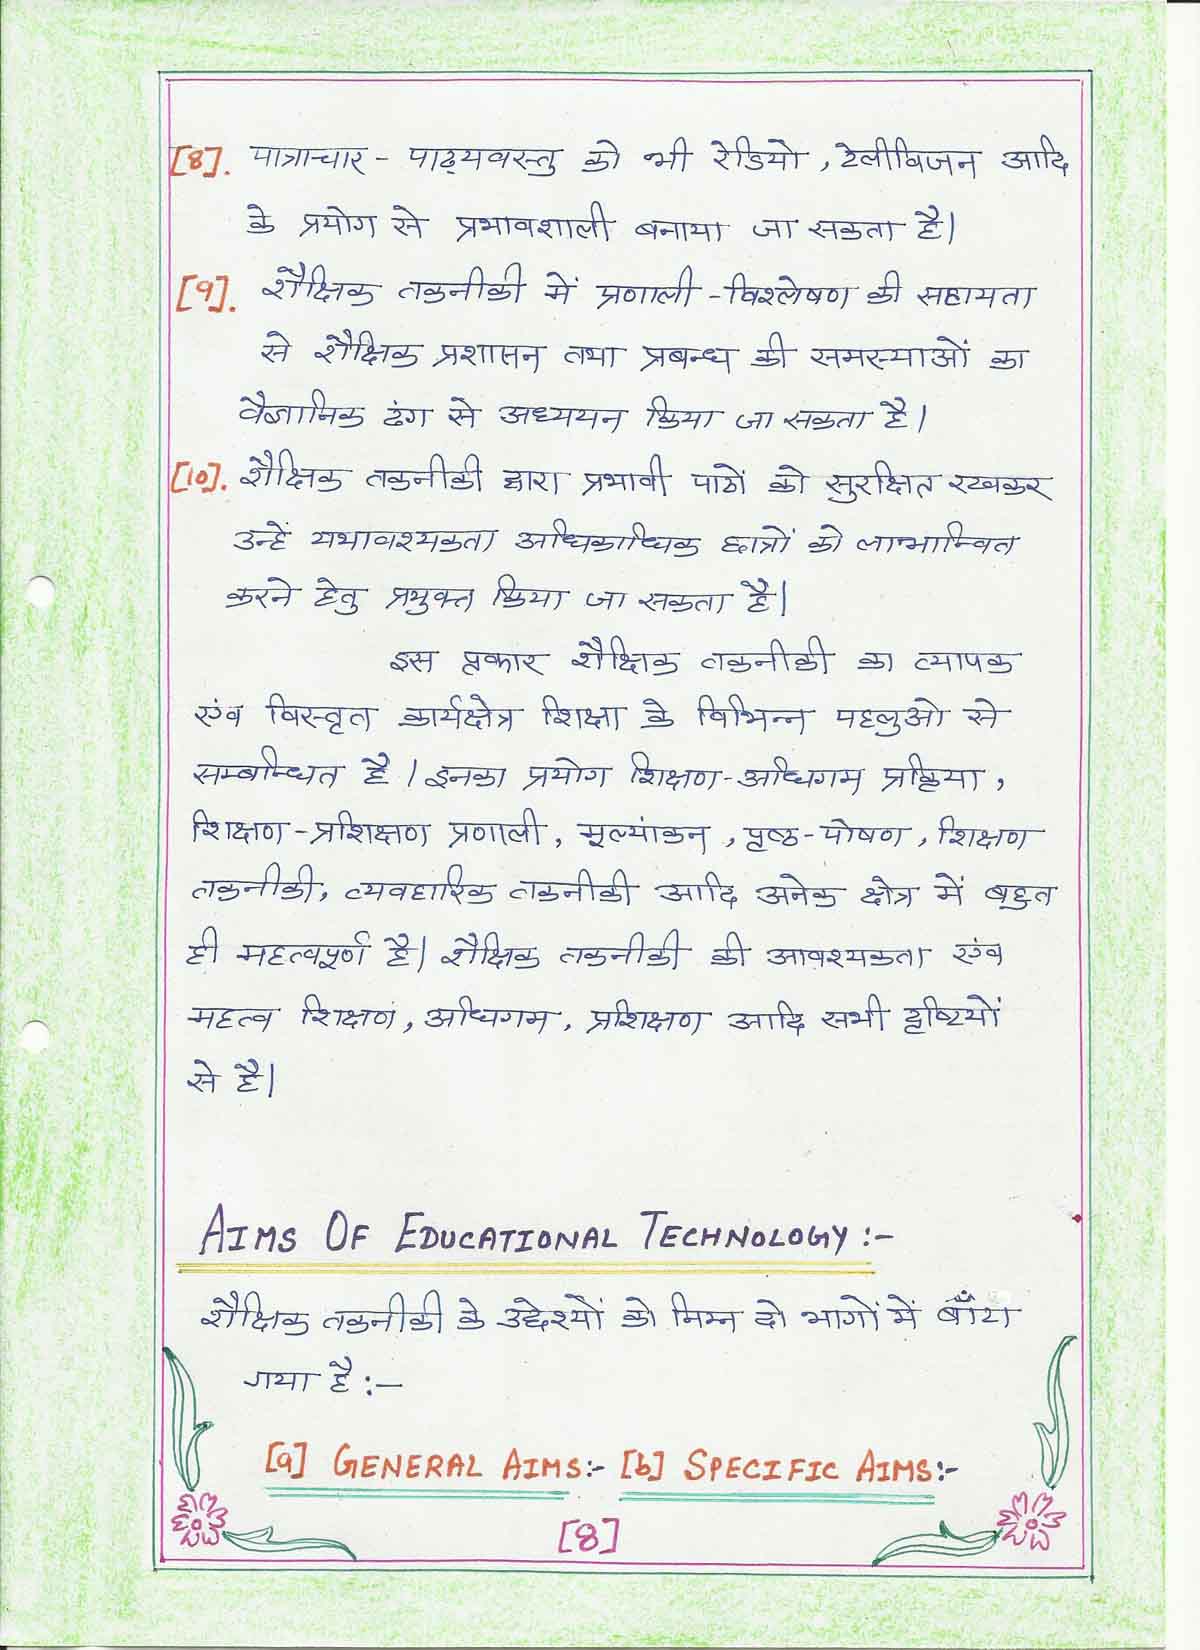 [8]. पात्राचार - पाठ्यवस्तु को भी रेडियो , टेलीविजन आदि
के प्रयोग से प्रभावशाली बनाया जा सकता है।
[9]. शैक्षिक तकनीकी में प्रणाली - विश्लेषण की सहायता
से शैक्षिक प्रशासन तथा प्रबन्ध की समस्याओं का
वैज्ञानिक ढंग से अध्ययन किया जा सकता है।
[10]. शैक्षिक तकनीकी द्वारा प्रभावी पाठों को सुरक्षित रखकर
उन्हें यथावश्यकता अधिकाधिक छात्रों को लाभान्वित
करने हेतु प्रयुक्त किया जा सकता है।
इस प्रकार शैक्षिक तकनीकी का व्यापक
एंव विस्तृत कार्यक्षेत्र शिक्षा के विभिन्न पहलुओ से
सम्बन्धित है । इनका प्रयोग शिक्षण-अधिगम प्रक्रिया ,
शिक्षण - प्रशिक्षण प्रणाली , मूल्यांकन , पृष्ठ-पोषण , शिक्षण
तकनीकी, व्यवहारिक तकनीकी आदि अनेक क्षेत्र में बहुत
ही महत्वपूर्ण है। शैक्षिक तकनीकी की आवश्यकता एंव
महत्व शिक्षणं , अधिगम , प्रशिक्षण आदि सभी दृष्टियों
से है।
AIMS OF EDUCATIONAL TECHNOLOGY :-
शैक्षिक तकनीकी के उद्देश्यों को निम्न दो भागों में बाँटा
गया है :-
[a] GENERAL AIMS:- [b] SPECIFIC AIMS:-
[8]